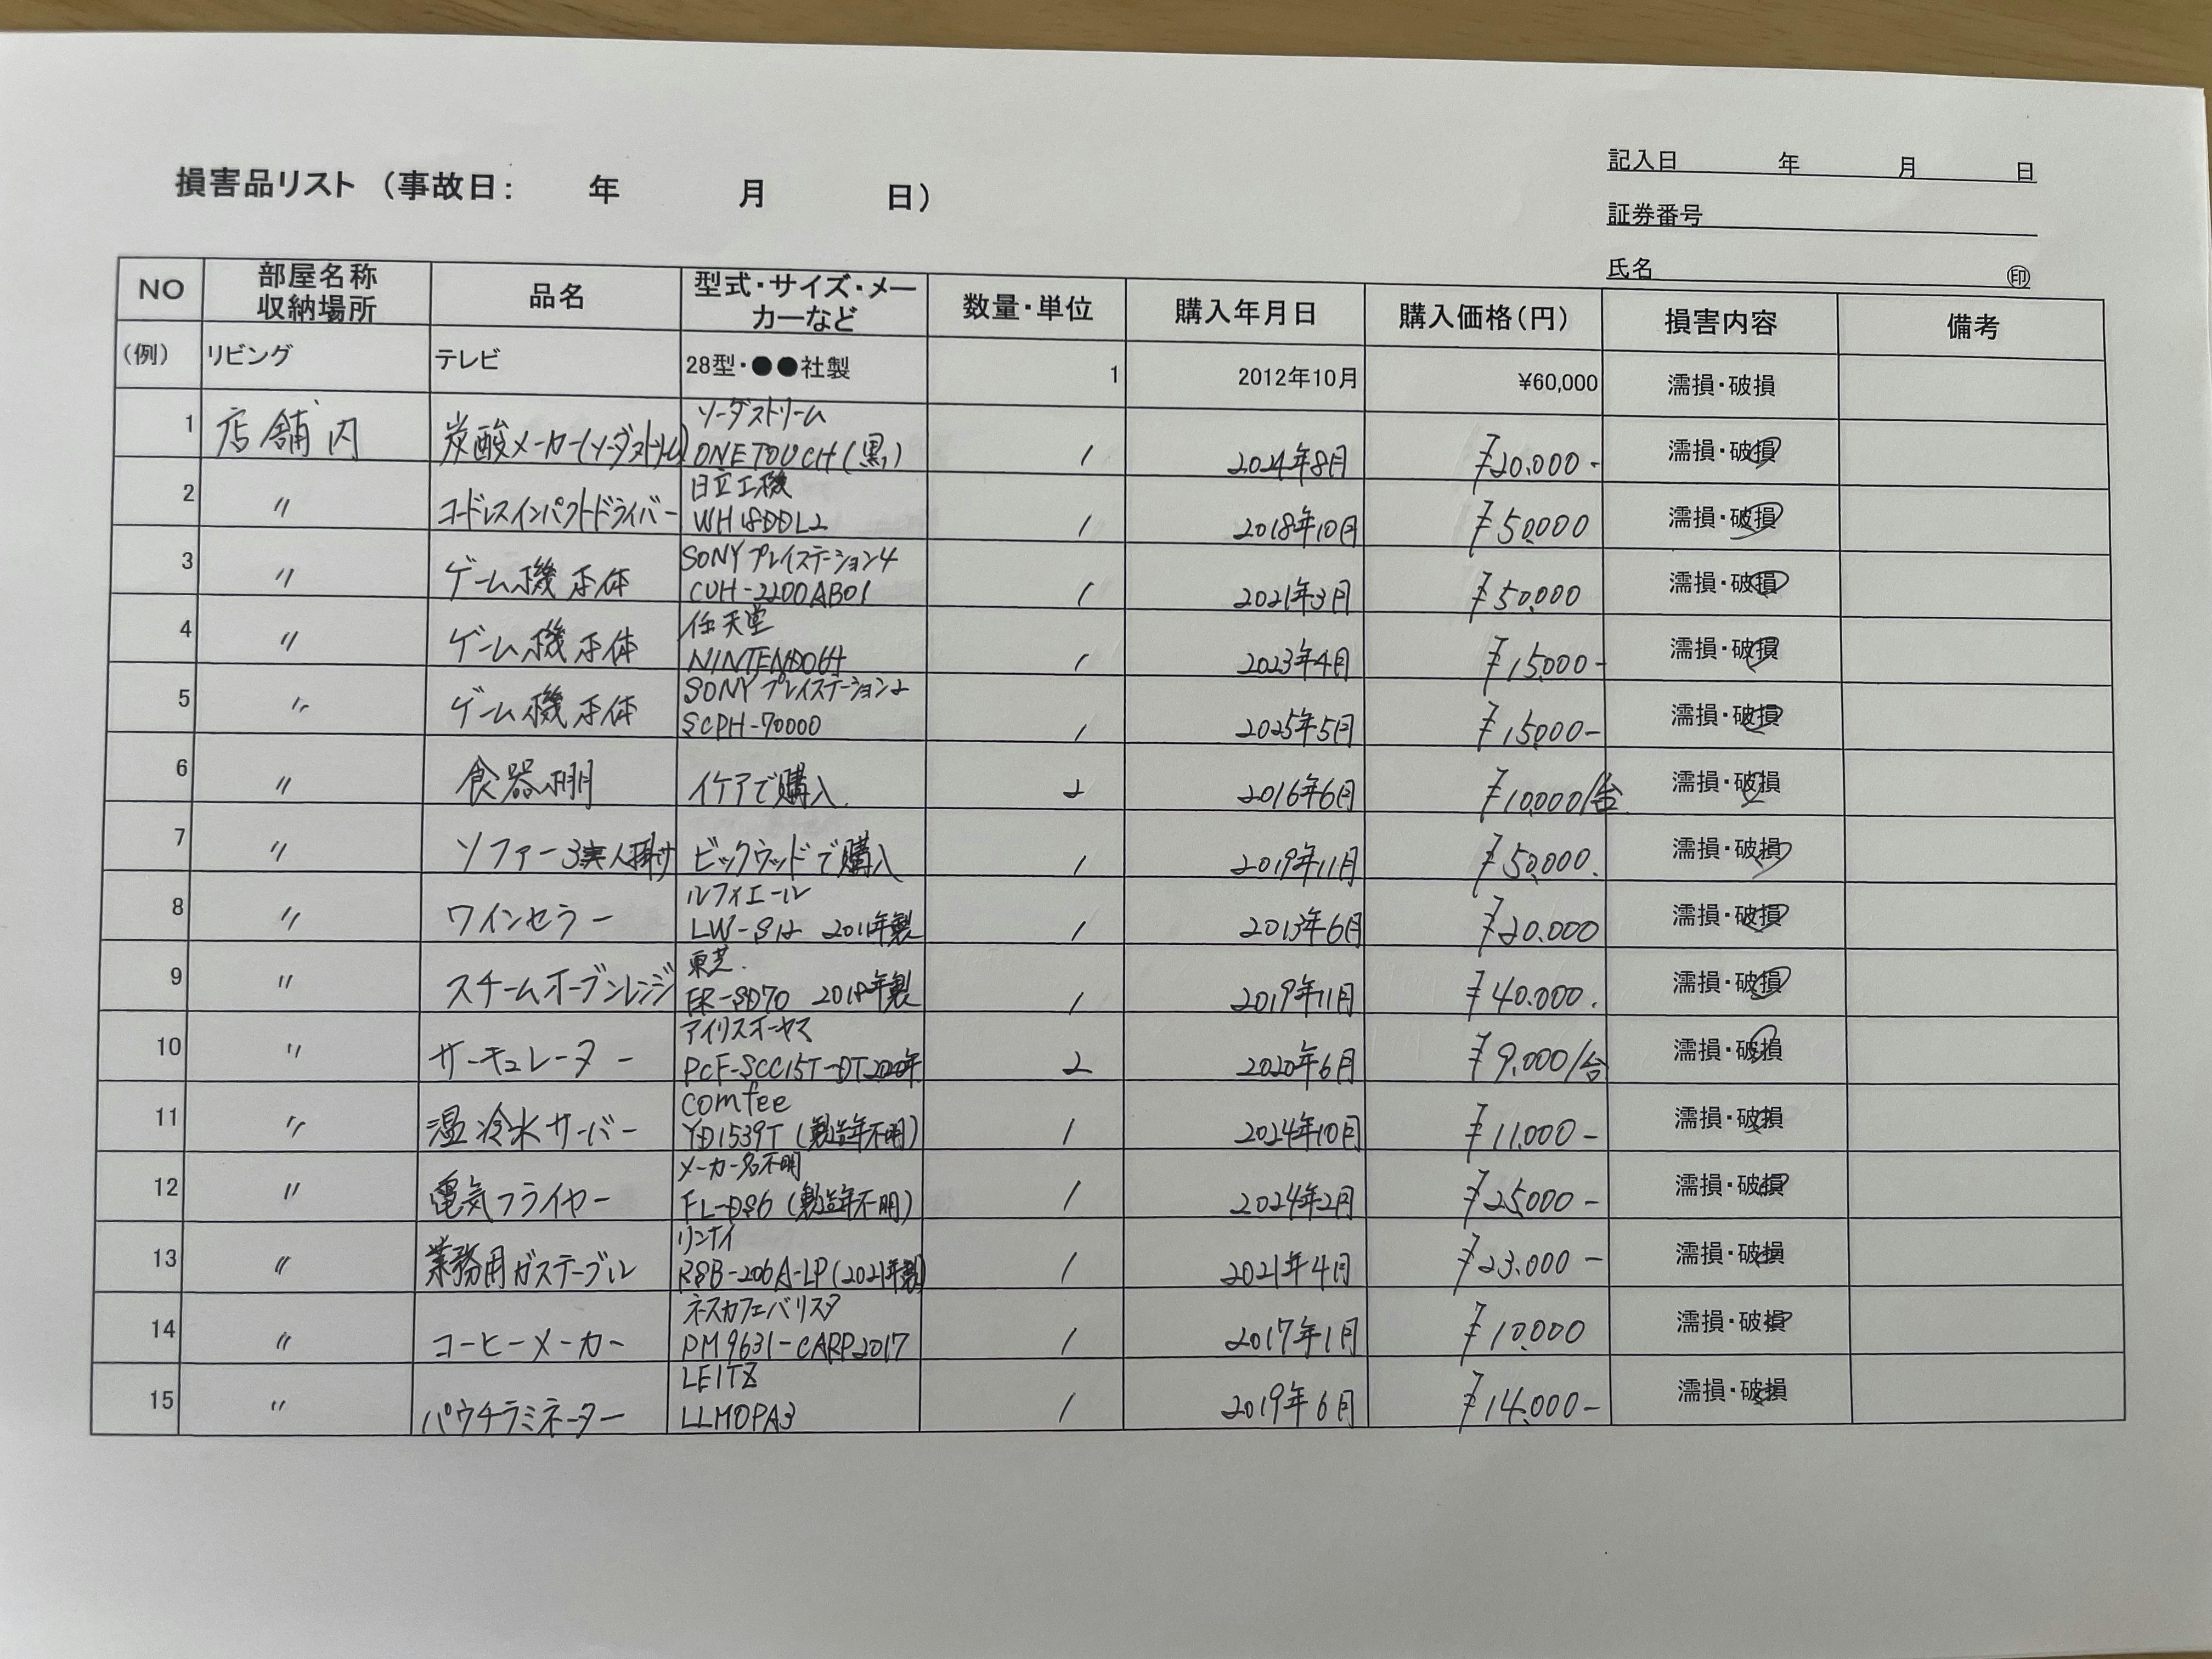 損害品リスト（事故日： 年 月 日）
記入日 年 月 日
証券番号
氏名 ㊞
NO 部屋名称 収納場所 品名 型式・サイズ・メーカーなど 数量・単位 購入年月日 購入価格（円） 損害内容 備考
（例） リビング テレビ 28型・●●社製 1 2012年10月 ¥60,000 濡損・破損
1 店舗内 炭酸メーカー(ソーダストリーム) ソーダストリーム ONE TOUCH (黒) 1 2024年8月 ¥20.000- 濡損・破損
2 〃 コードレスインパクトドライバー 日立工機 WH18DDL2 1 2018年10月 ¥50.000 濡損・破損
3 〃 ゲーム機本体 SONY プレイステーション4 CUH-2200AB01 1 2021年3月 ¥50.000 濡損・破損
4 〃 ゲーム機本体 任天堂 NINTENDO64 1 2023年4月 ¥15.000- 濡損・破損
5 〃 ゲーム機本体 SONY プレイステーション2 SCPH-70000 1 2025年5月 ¥15.000- 濡損・破損
6 〃 食器棚 イケアで購入. 2 2016年6月 ¥10.000/台 濡損・破損
7 〃 ソファー3人掛け ビックウッドで購入 1 2019年11月 ¥50.000. 濡損・破損
8 〃 ワインセラー ルフィエール LW-S12 2011年製 1 2013年6月 ¥20.000 濡損・破損
9 〃 スチームオーブンレンジ 東芝. ER-SD70 2018年製 1 2019年11月 ¥40.000. 濡損・破損
10 〃 サーキュレーター アイリスオーヤマ PCF-SCC15T-DT2020年 2 2020年6月 ¥9.000/台 濡損・破損
11 〃 温冷水サーバー comfee YD1539T (製造年不明) 1 2024年10月 ¥11.000- 濡損・破損
12 〃 電気フライヤー メーカー名不明 FL-DS6 (製造年不明) 1 2024年2月 ¥25.000- 濡損・破損
13 〃 業務用ガステーブル リンナイ RSB-206A-LP (2021年製) 1 2021年4月 ¥23.000- 濡損・破損
14 〃 コーヒーメーカー ネスカフェバリスタ PM9631-CARP2017 1 2017年1月 ¥10.000 濡損・破損
15 〃 パウチラミネーター LEITZ LLMOPA3 1 2019年6月 ¥14.000- 濡損・破損